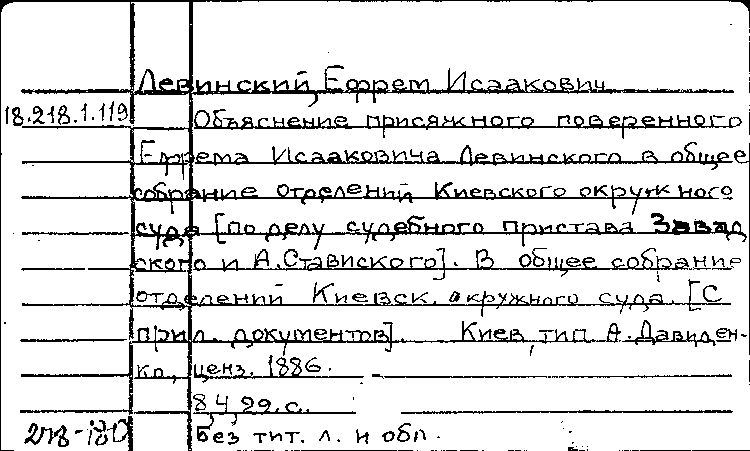 Левинский, Ефрем Исаакович
18.218.1.119 Объяснение присяжного поверенного
Ефрема Исааковича Левинского в общее
собрание отделений Киевского окружного
суда [по делу судебного пристава Завад
ского и А. Ставиского]. В общее собрание
отделений Киевск. окружного суда. [С
прил. документов]. Киев, тип. А. Давиден-
ко, ценз. 1886.
8,4,29.с.
Без тит. л. и обл.